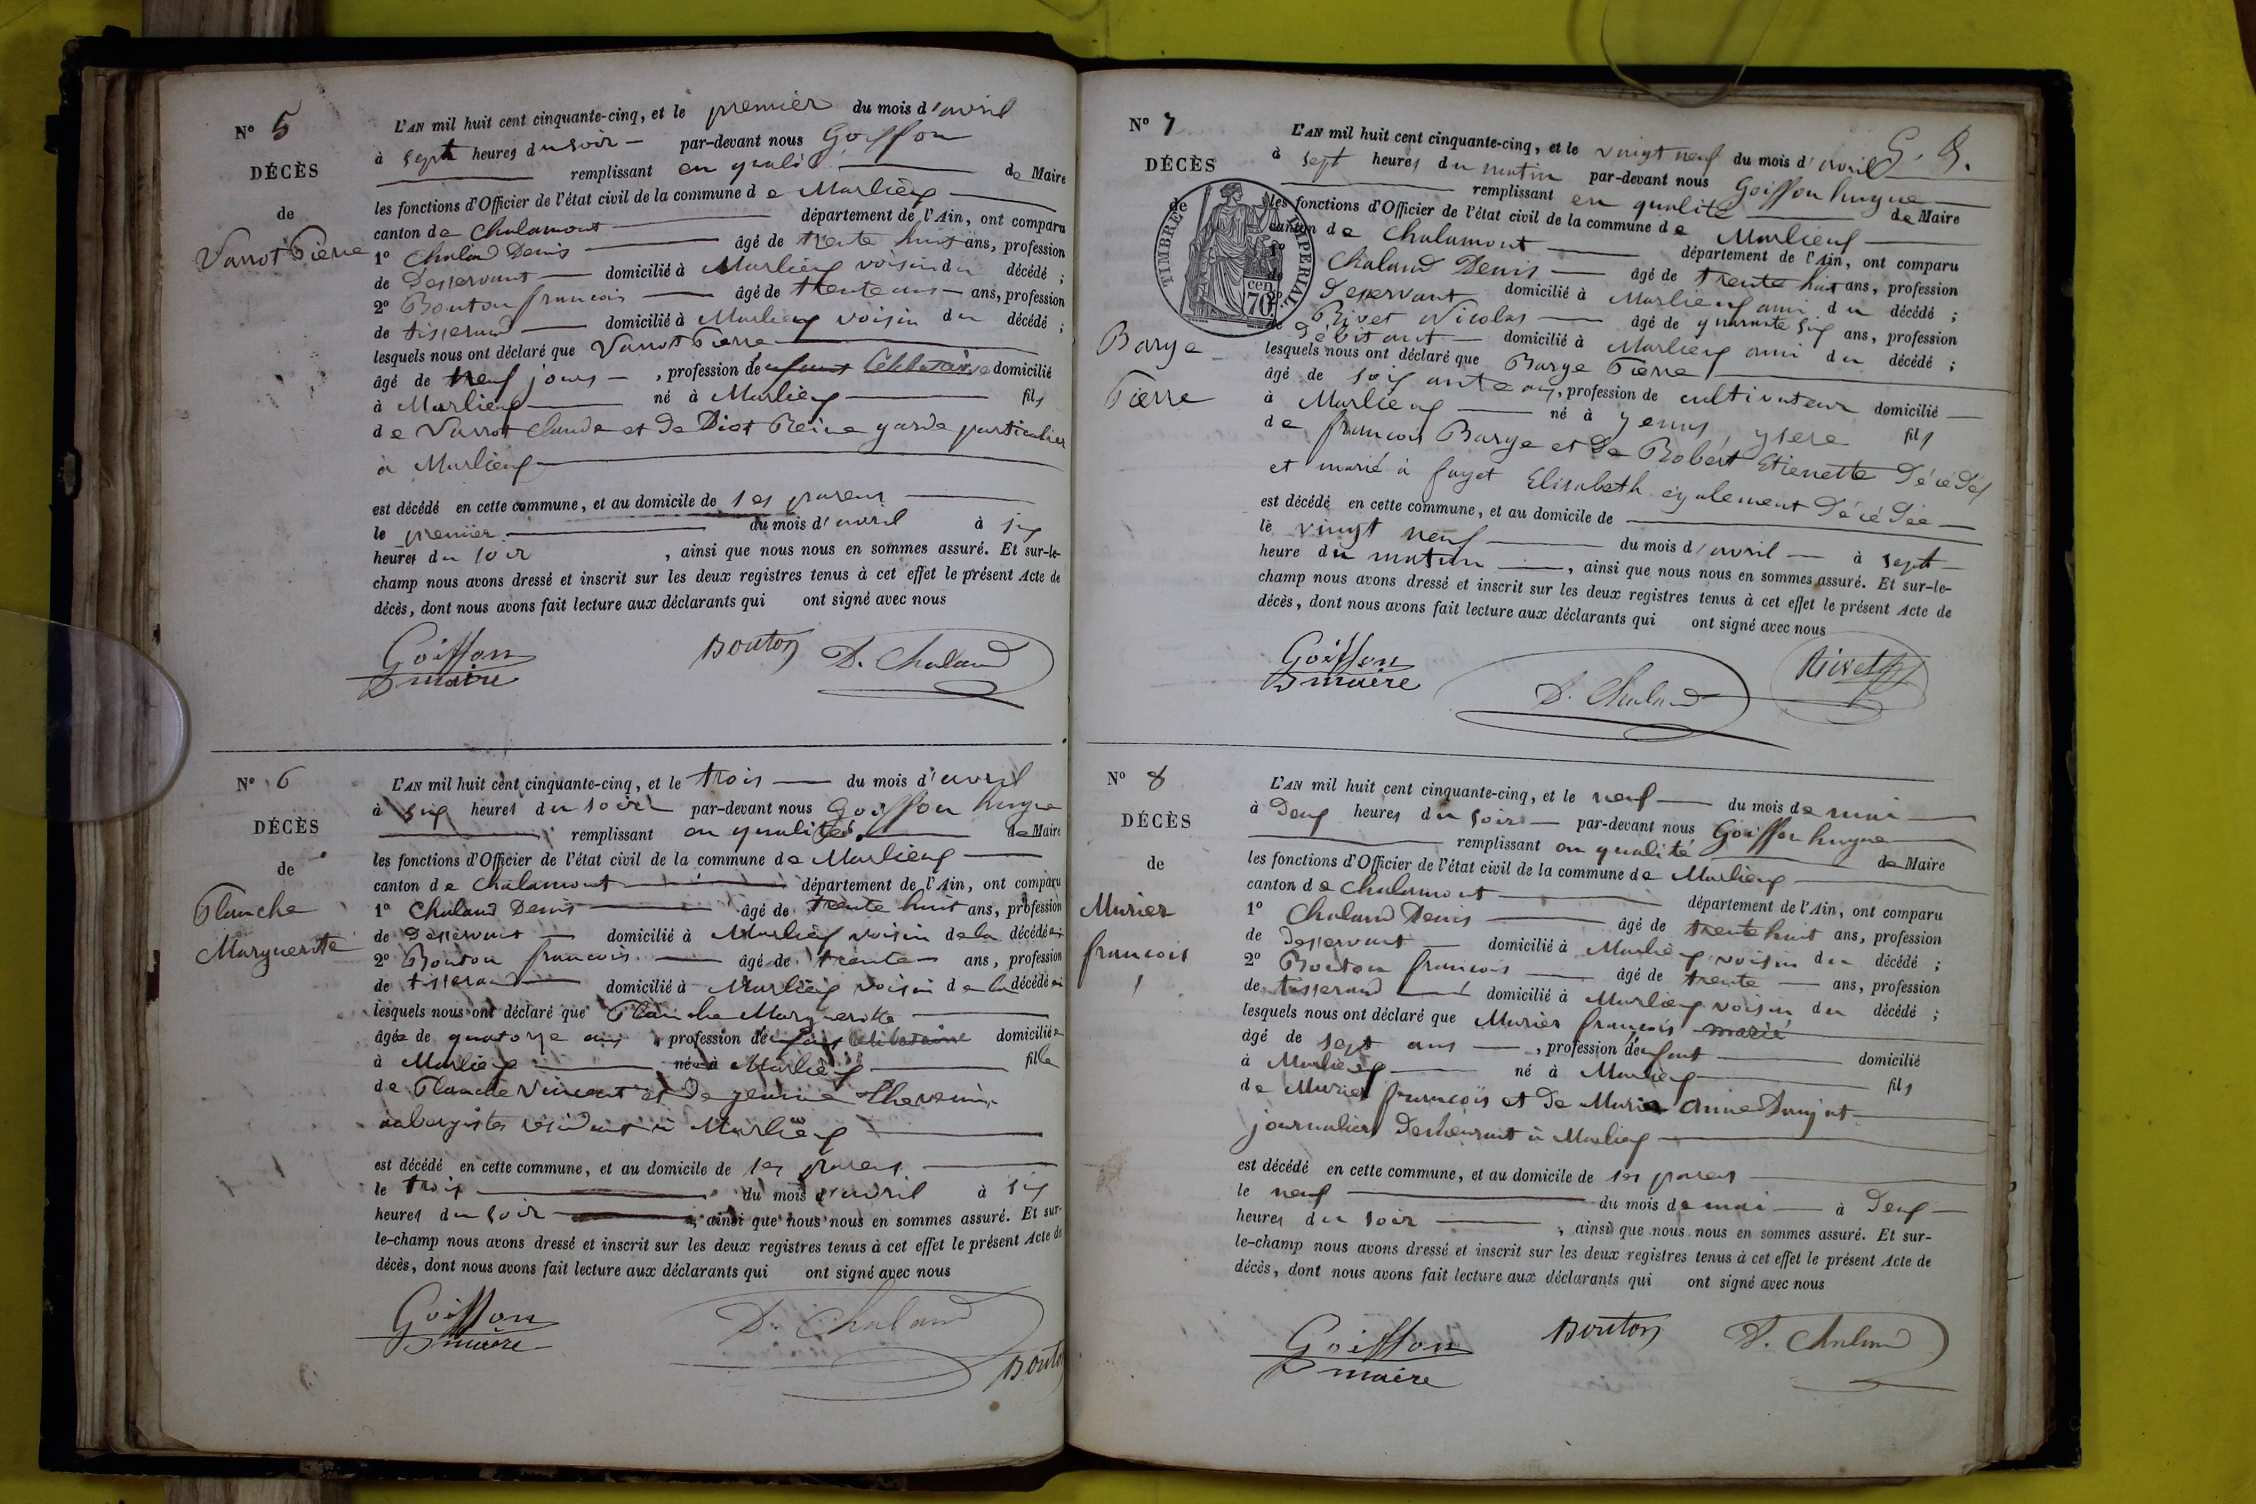 N° 5
DÉCÈS
de
Varrot Pierre
L'AN mil huit cent cinquante-cinq, et le premier du mois d'avril
à sept heures du soir — par-devant nous Goiffon
remplissant en qualité de Maire
les fonctions d'Officier de l'état civil de la commune de Marlieux
canton de Chalamont département de l'Ain, ont comparu
1° Chaland Denis âgé de trente huit ans, profession
de Desservant domicilié à Marlieux voisin du décédé ;
2° Bouton francois âgé de trente ans, profession
de tisserand domicilié à Marlieux voisin du décédé ;
lesquels nous ont déclaré que Varrot Pierre
âgé de neuf jours , profession de enfant Celibataire domicilié
à Marlieux né à Marlieux fils
de Varrot Claude et de Diot Reine garde particulier
à Marlieux
est décédé en cette commune, et au domicile de ses parens
le premier du mois d'avril à six
heures du soir , ainsi que nous nous en sommes assuré. Et sur-le-
champ nous avons dressé et inscrit sur les deux registres tenus à cet effet le présent Acte de
décès, dont nous avons fait lecture aux déclarants qui ont signé avec nous
Goiffon maire
Bouton
D. Chaland
N° 6
DÉCÈS
de
Planche
Marguerite
L'AN mil huit cent cinquante-cinq, et le trois du mois d'avril
à six heures du soir par-devant nous Goiffon hugue
remplissant en qualité de Maire
les fonctions d'Officier de l'état civil de la commune de Marlieux
canton de Chalamont département de l'Ain, ont comparu
1° Chaland Denis âgé de trente huit ans, profession
de Desservant domicilié à Marlieux voisin de la décédée
2° Bouton francois âgé de trente ans, profession
de tisserand domicilié à Marlieux voisin de la décédée
lesquels nous ont déclaré que Planche Marguerite
âgée de quatorze ans , profession de celibataire domiciliée
à Marlieux née à Marlieux fille
de Planche Vincent et de jeanne Thevenin
aubergistes résidant à Marlieux
est décédé en cette commune, et au domicile de ses parens
le trois du mois d'avril à six
heures du soir , ainsi que nous nous en sommes assuré. Et sur-
le-champ nous avons dressé et inscrit sur les deux registres tenus à cet effet le présent Acte de
décès, dont nous avons fait lecture aux déclarants qui ont signé avec nous
Goiffon maire
D. Chaland
Bouton
N° 7
DÉCÈS
de
Barge
Pierre
TIMBRE IMPERIAL
70 cen
L'AN mil huit cent cinquante-cinq, et le vingt neuf du mois d'avril
à sept heures du matin par-devant nous Goiffon hugue
remplissant en qualité de Maire
les fonctions d'Officier de l'état civil de la commune de Marlieux
canton de Chalamont département de l'Ain, ont comparu
1° Chaland Denis âgé de trente huit ans, profession
de Desservant domicilié à Marlieux ami du décédé ;
2° Rivet Nicolas âgé de quarante six ans, profession
de Débitant domicilié à Marlieux ami du décédé ;
lesquels nous ont déclaré que Barge Pierre
âgé de soixante ans, profession de cultivateur domicilié
à Marlieux né à yenns ysere fils
de francois Barge et de Robert Etienette Décédés
et marié à fayet Elisabeth également Décédée
est décédé en cette commune, et au domicile de
le vingt neuf du mois d'avril à sept
heure du matin , ainsi que nous nous en sommes assuré. Et sur-le-
champ nous avons dressé et inscrit sur les deux registres tenus à cet effet le présent Acte de
décès, dont nous avons fait lecture aux déclarants qui ont signé avec nous
Goiffon maire
D. Chaland
Rivet
N° 8
DÉCÈS
de
Murier
francois
L'AN mil huit cent cinquante-cinq, et le neuf du mois de mai
à Deux heures du soir par-devant nous Goiffon hugue
remplissant en qualité de Maire
les fonctions d'Officier de l'état civil de la commune de Marlieux
canton de Chalamont département de l'Ain, ont comparu
1° Chaland Denis âgé de trente huit ans, profession
de Desservant domicilié à Marlieux voisin du décédé ;
2° Bouton francois âgé de trente ans, profession
de tisserand domicilié à Marlieux voisin du décédé ;
lesquels nous ont déclaré que Murier francois marié
âgé de sept ans , profession d'enfant domicilié
à Marlieux né à Marlieux fils
de Murier francois et de Murier Anne
journaliers Demeurant à Marlieux
est décédé en cette commune, et au domicile de ses parens
le neuf du mois de mai à Deux
heures du soir , ainsi que nous nous en sommes assuré. Et sur-
le-champ nous avons dressé et inscrit sur les deux registres tenus à cet effet le présent Acte de
décès, dont nous avons fait lecture aux déclarants qui ont signé avec nous
Goiffon maire
Bouton
D. Chaland